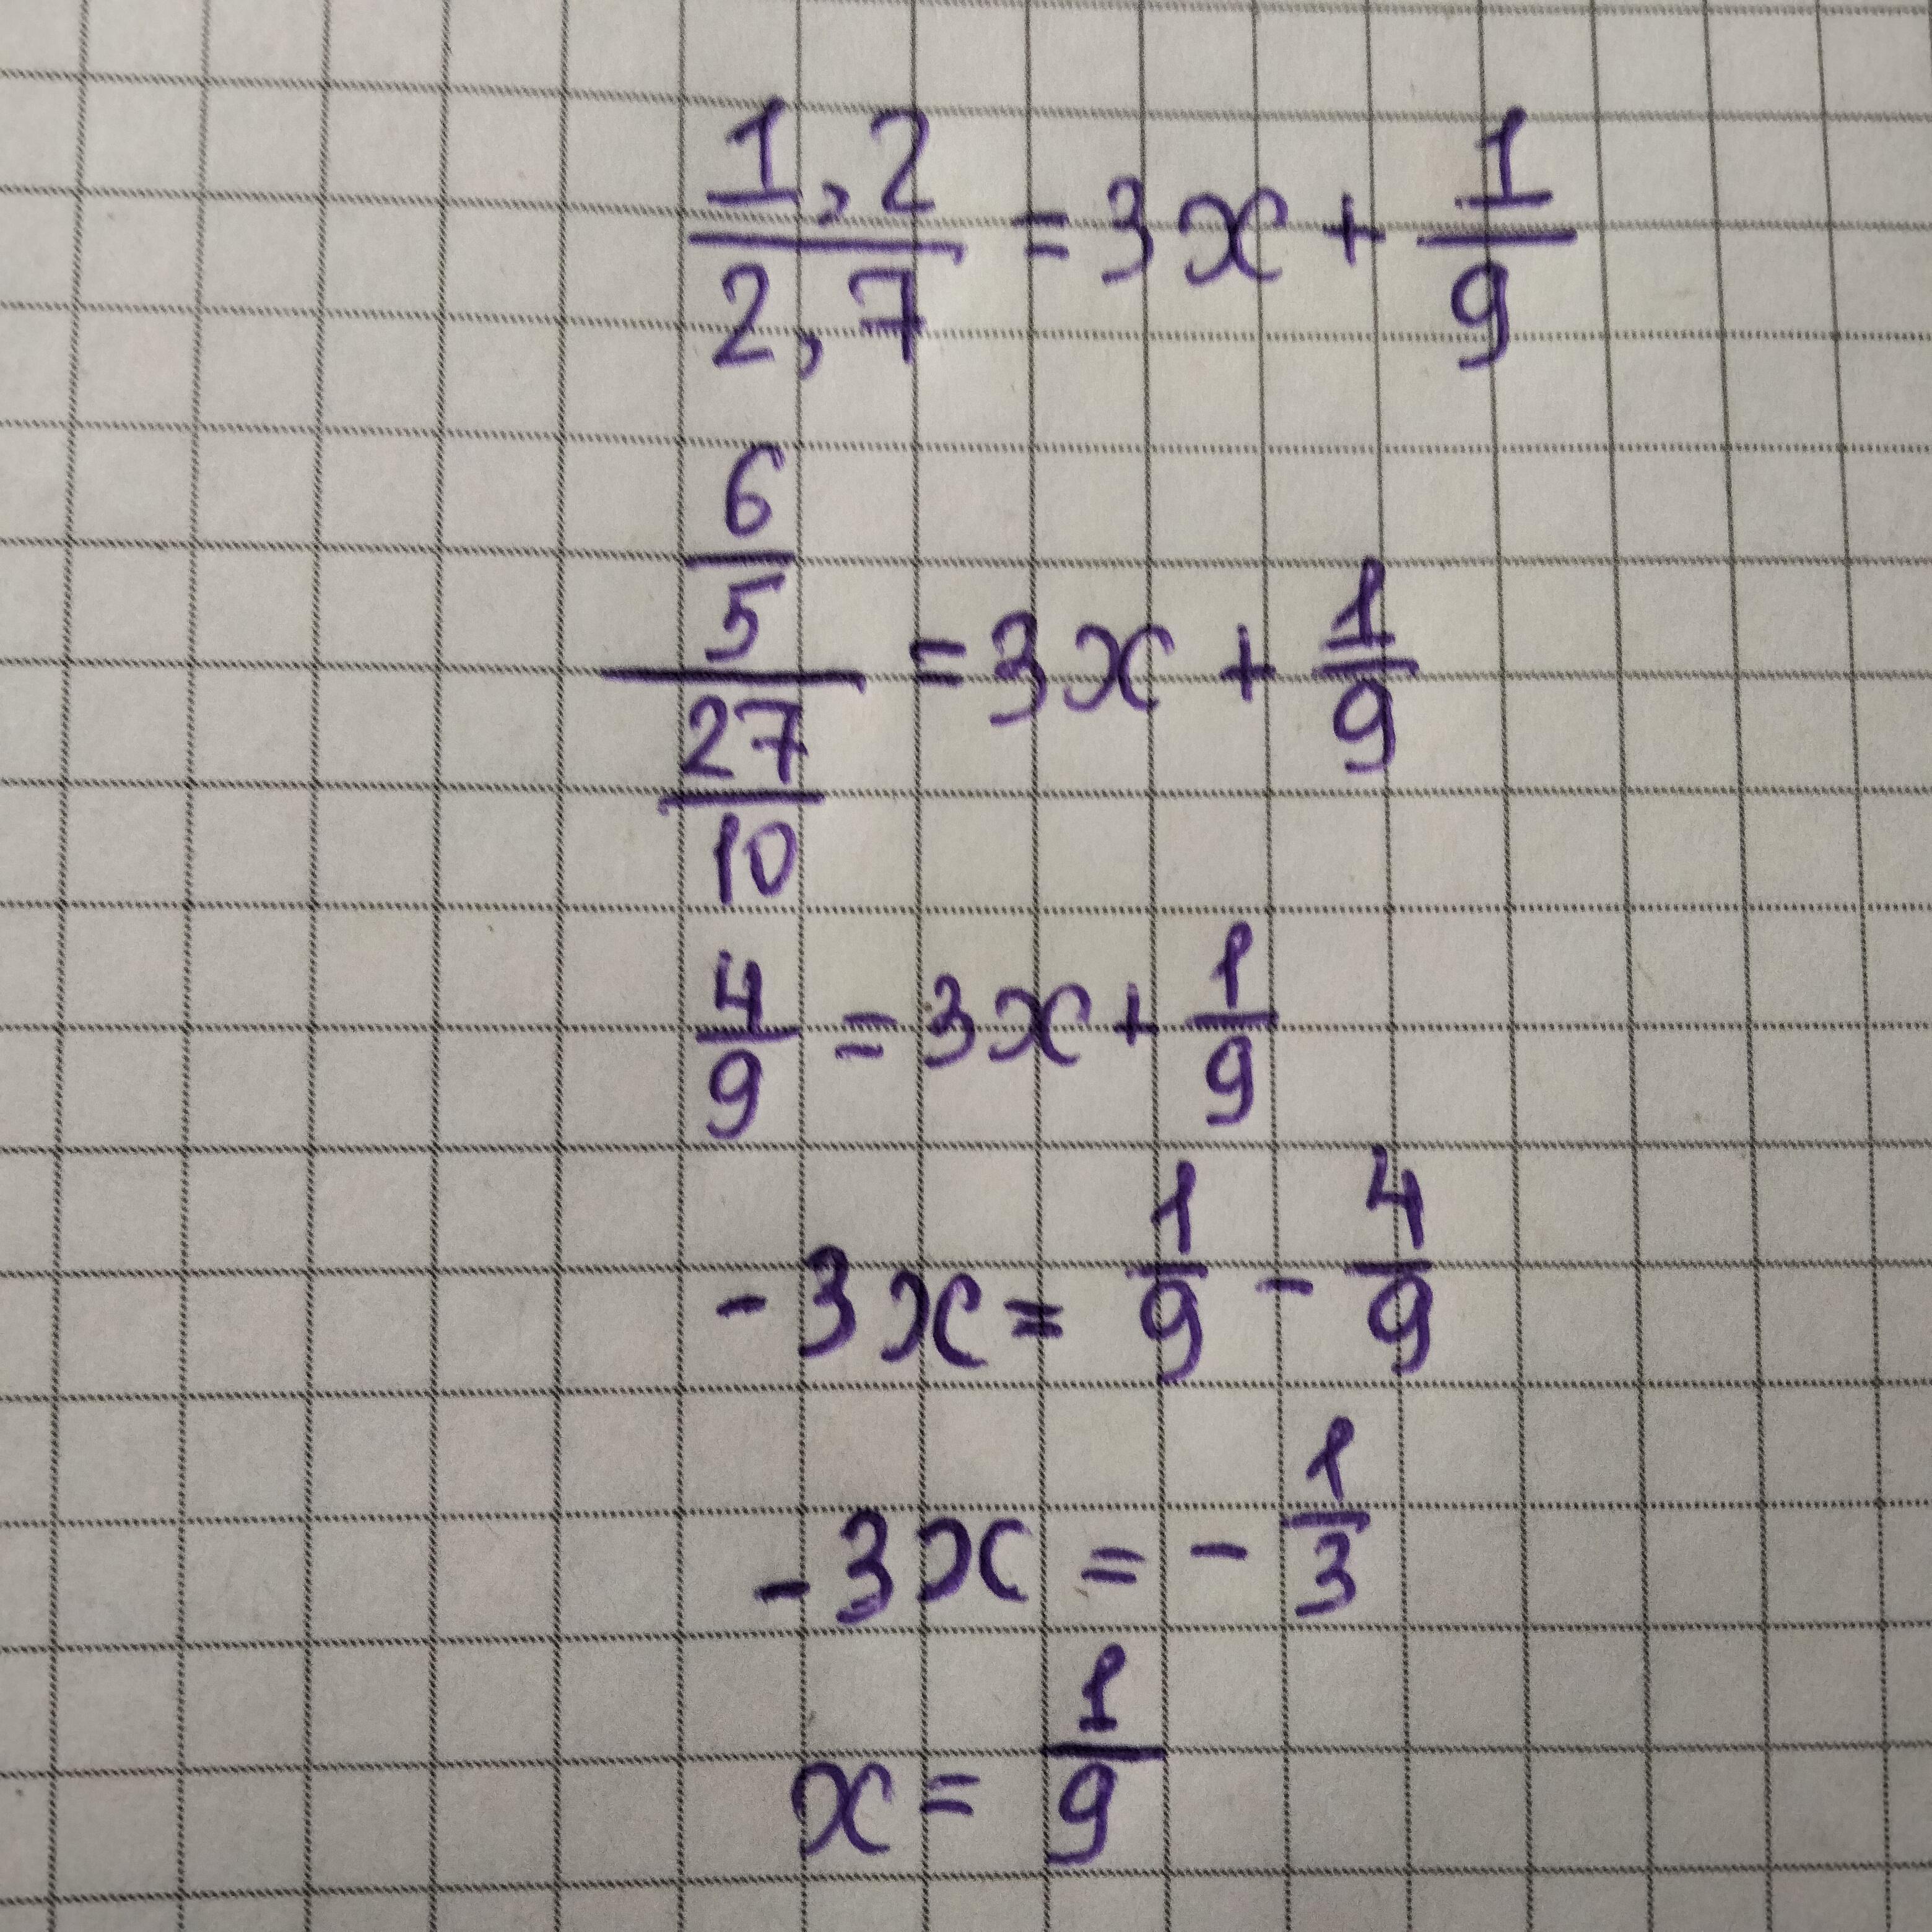 1,2/2,7 = 3x + 1/9
(6/5)/(27/10) = 3x + 1/9
4/9 = 3x + 1/9
-3x = 1/9 - 4/9
-3x = - 1/3
x = 1/9